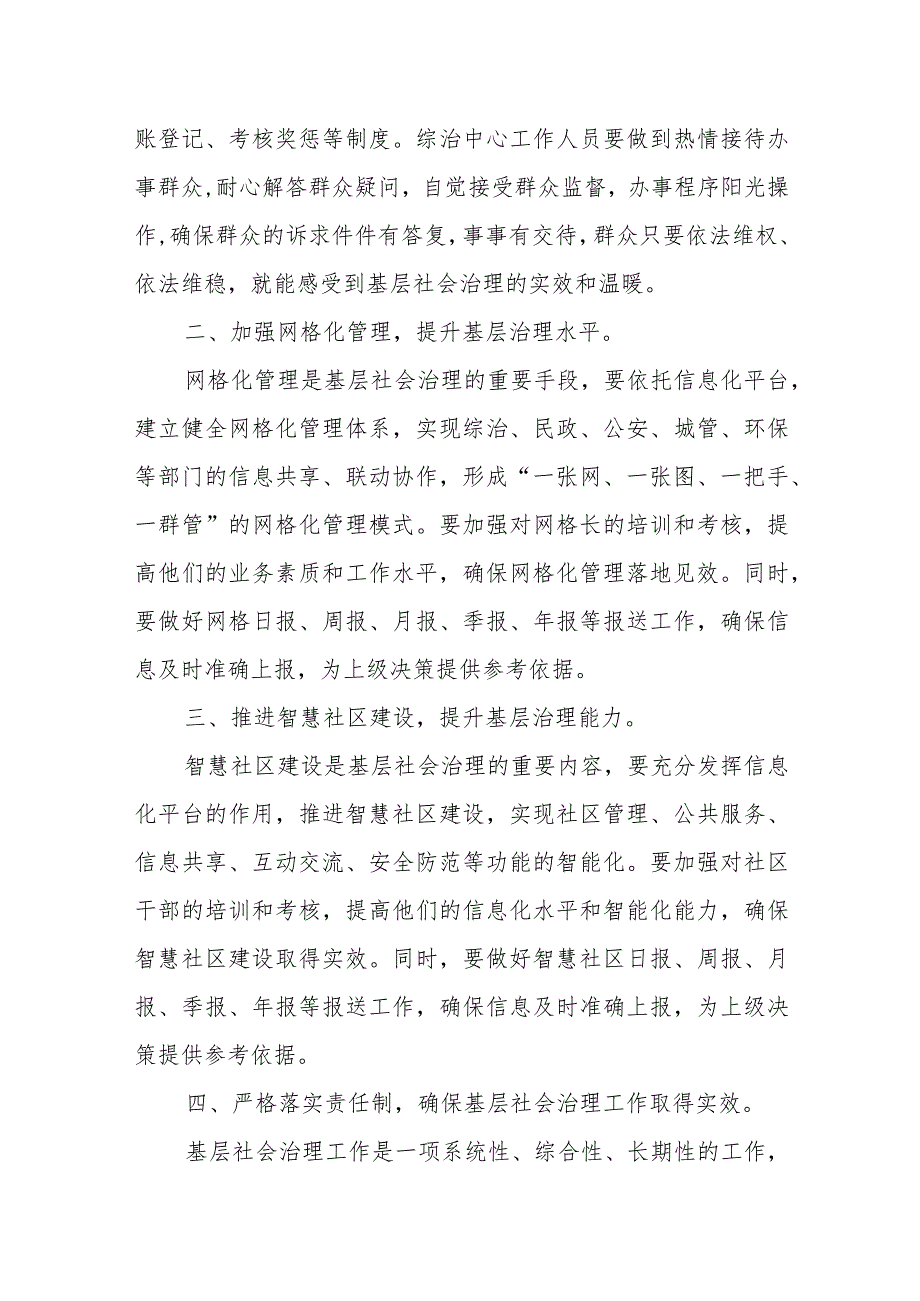 账登记、考核奖惩等制度。综治中心工作人员要做到热情接待办
事群众,耐心解答群众疑问，自觉接受群众监督，办事程序阳光操
作,确保群众的诉求件件有答复，事事有交待，群众只要依法维权、
依法维稳，就能感受到基层社会治理的实效和温暖。
二、加强网格化管理，提升基层治理水平。
网格化管理是基层社会治理的重要手段，要依托信息化平台，
建立健全网格化管理体系，实现综治、民政、公安、城管、环保
等部门的信息共享、联动协作，形成“一张网、一张图、一把手、
一群管”的网格化管理模式。要加强对网格长的培训和考核，提
高他们的业务素质和工作水平，确保网格化管理落地见效。同时，
要做好网格日报、周报、月报、季报、年报等报送工作，确保信
息及时准确上报，为上级决策提供参考依据。
三、推进智慧社区建设，提升基层治理能力。
智慧社区建设是基层社会治理的重要内容，要充分发挥信息
化平台的作用，推进智慧社区建设，实现社区管理、公共服务、
信息共享、互动交流、安全防范等功能的智能化。要加强对社区
干部的培训和考核，提高他们的信息化水平和智能化能力，确保
智慧社区建设取得实效。同时，要做好智慧社区日报、周报、月
报、季报、年报等报送工作，确保信息及时准确上报，为上级决
策提供参考依据。
四、严格落实责任制，确保基层社会治理工作取得实效。
基层社会治理工作是一项系统性、综合性、长期性的工作，